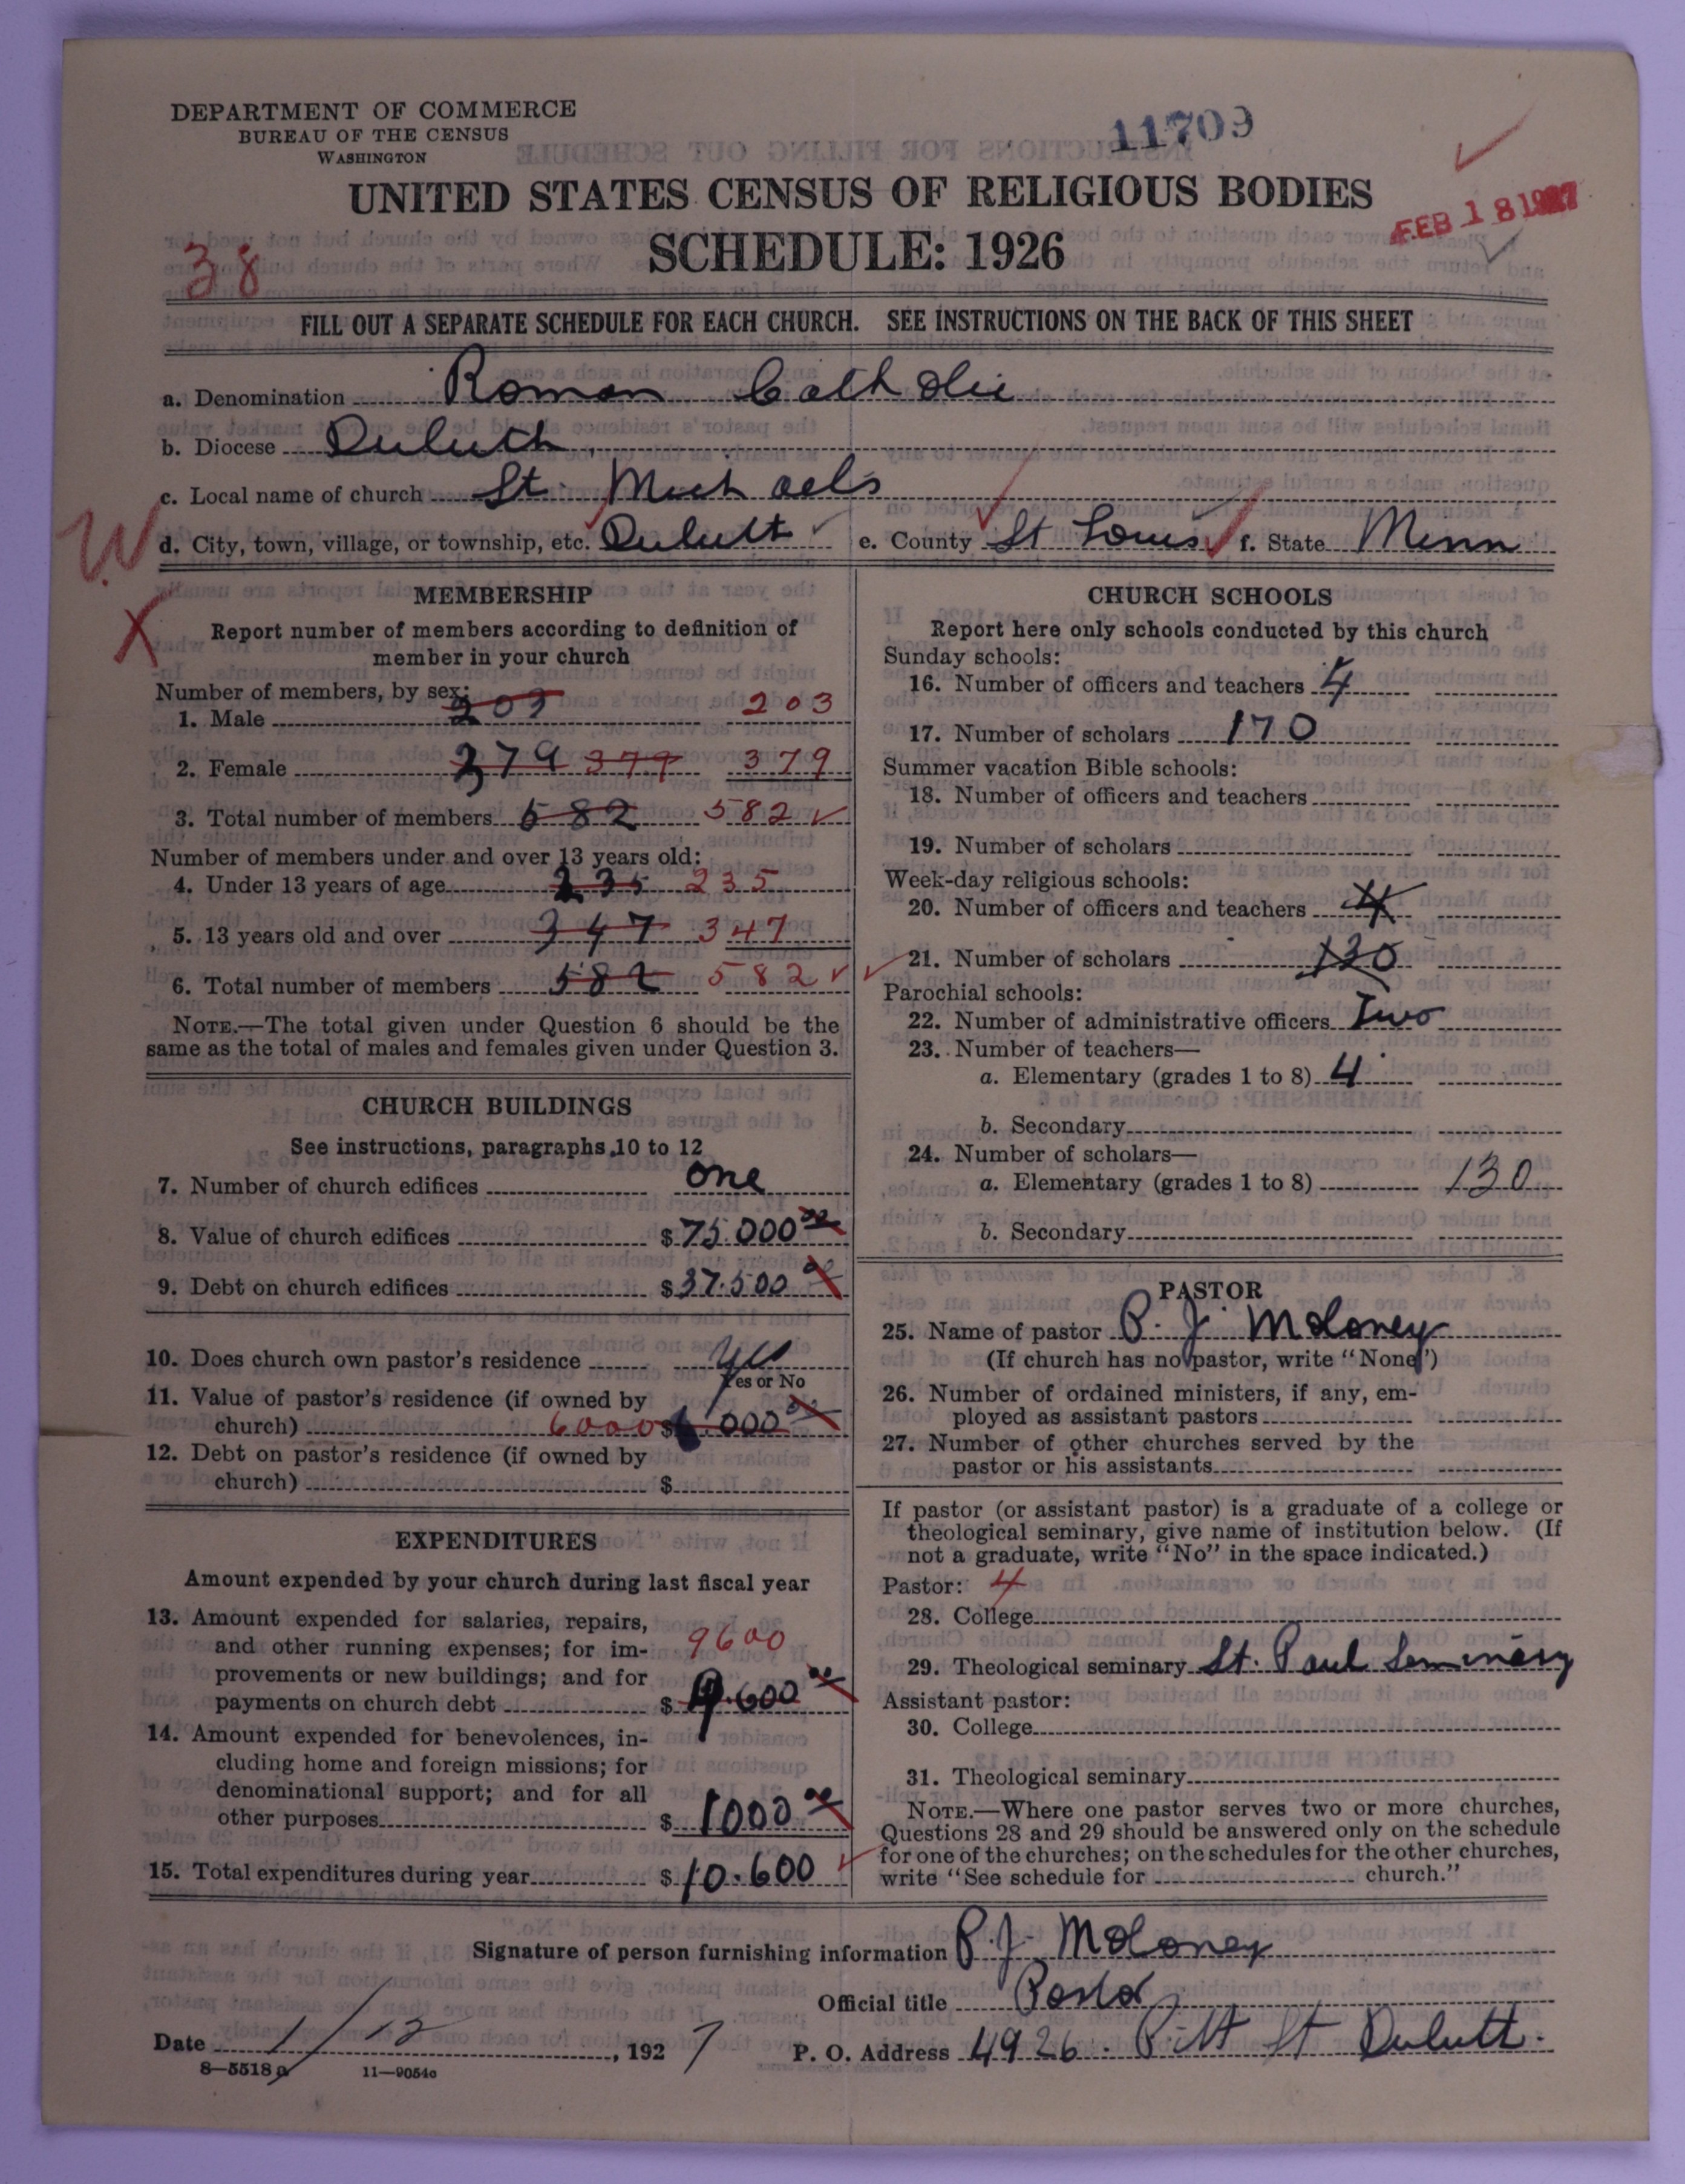 DEPARTMENT OF COMMERCE
BUREAU OF THE CENSUS
WASHINGTON
11709
UNITED STATES CENSUS OF RELIGIOUS BODIES
SCHEDULE: 1926
FEB 18 1927
38
FILL OUT A SEPARATE SCHEDULE FOR EACH CHURCH. SEE INSTRUCTIONS ON THE BACK OF THIS SHEET
a. Denomination Roman Catholic
b. Diocese Duluth
c. Local name of church St. Michaels
W
d. City, town, village, or township, etc. Duluth e. County St Louis f. State Minn
MEMBERSHIP
X
Report number of members according to definition of
member in your church
Number of members, by sex:
1. Male 203 203
2. Female 379 379 379
3. Total number of members 582 582
Number of members under and over 13 years old:
4. Under 13 years of age 235 235
5. 13 years old and over 347 347
6. Total number of members 582 582
NOTE.—The total given under Question 6 should be the
same as the total of males and females given under Question 3.
CHURCH BUILDINGS
See instructions, paragraphs 10 to 12
7. Number of church edifices one
8. Value of church edifices $75.000 00
9. Debt on church edifices $37.500 00
10. Does church own pastor's residence yes
Yes or No
11. Value of pastor's residence (if owned by
church) 6000 $6.000 00
12. Debt on pastor's residence (if owned by
church) $
EXPENDITURES
Amount expended by your church during last fiscal year
13. Amount expended for salaries, repairs,
and other running expenses; for im- 9600
provements or new buildings; and for
payments on church debt $ 9.600 00
14. Amount expended for benevolences, in-
cluding home and foreign missions; for
denominational support; and for all
other purposes $ 1000 00
15. Total expenditures during year $ 10.600
CHURCH SCHOOLS
Report here only schools conducted by this church
Sunday schools:
16. Number of officers and teachers 4
17. Number of scholars 170
Summer vacation Bible schools:
18. Number of officers and teachers
19. Number of scholars
Week-day religious schools:
20. Number of officers and teachers 4
21. Number of scholars 130
Parochial schools:
22. Number of administrative officers Two
23. Number of teachers—
a. Elementary (grades 1 to 8) 4
b. Secondary
24. Number of scholars—
a. Elementary (grades 1 to 8) 130
b. Secondary
PASTOR
25. Name of pastor P. J. Moloney
(If church has no pastor, write "None")
26. Number of ordained ministers, if any, em-
ployed as assistant pastors
27. Number of other churches served by the
pastor or his assistants
If pastor (or assistant pastor) is a graduate of a college or
theological seminary, give name of institution below. (If
not a graduate, write "No" in the space indicated.)
Pastor: 4
28. College
29. Theological seminary St. Paul Seminary
Assistant pastor:
30. College
31. Theological seminary
NOTE.—Where one pastor serves two or more churches,
Questions 28 and 29 should be answered only on the schedule
for one of the churches; on the schedules for the other churches,
write "See schedule for church."
Signature of person furnishing information P. J. Moloney
Official title Pastor
Date 1/12, 1927 P. O. Address 4926. Pitt St Duluth.
8—5518a 11—9054c